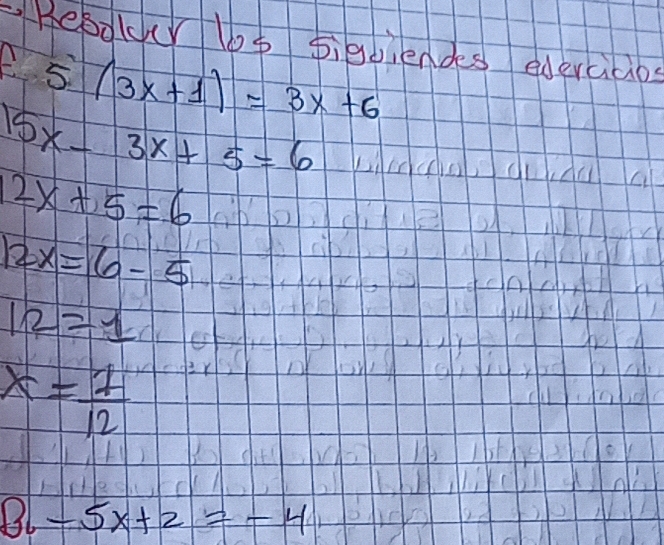 Resolver los siguiendes edercicios
A. 5 (3x+1) = 3x +6
15x - 3x + 5 = 6
12x + 5 = 6
12x = 6 - 5
12 = 1
x = 1/12
B. -5x+2 = -4